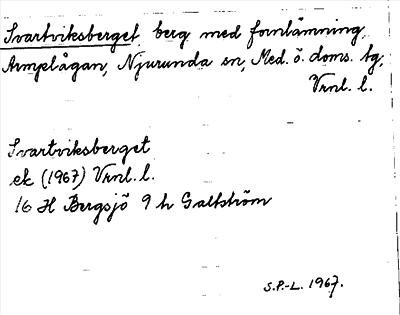 Svartviksberget, berg med fornlämning,
Armplågan, Njurunda sn, Med. ö. doms. tg,
Vrnl. l.
Svartviksberget
ek (1967) Vrnl. l.
16 H Bergsjö 9 h Galtström
S.P.-L. 1967.